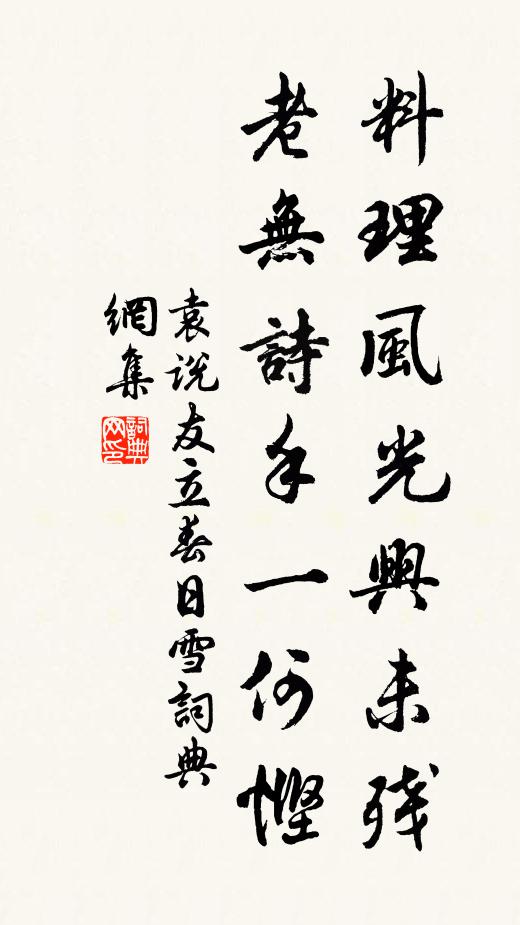 料理風光興未殘
老無詩手一何慳
袁说友立春日雪詞典
網集
詞典網印